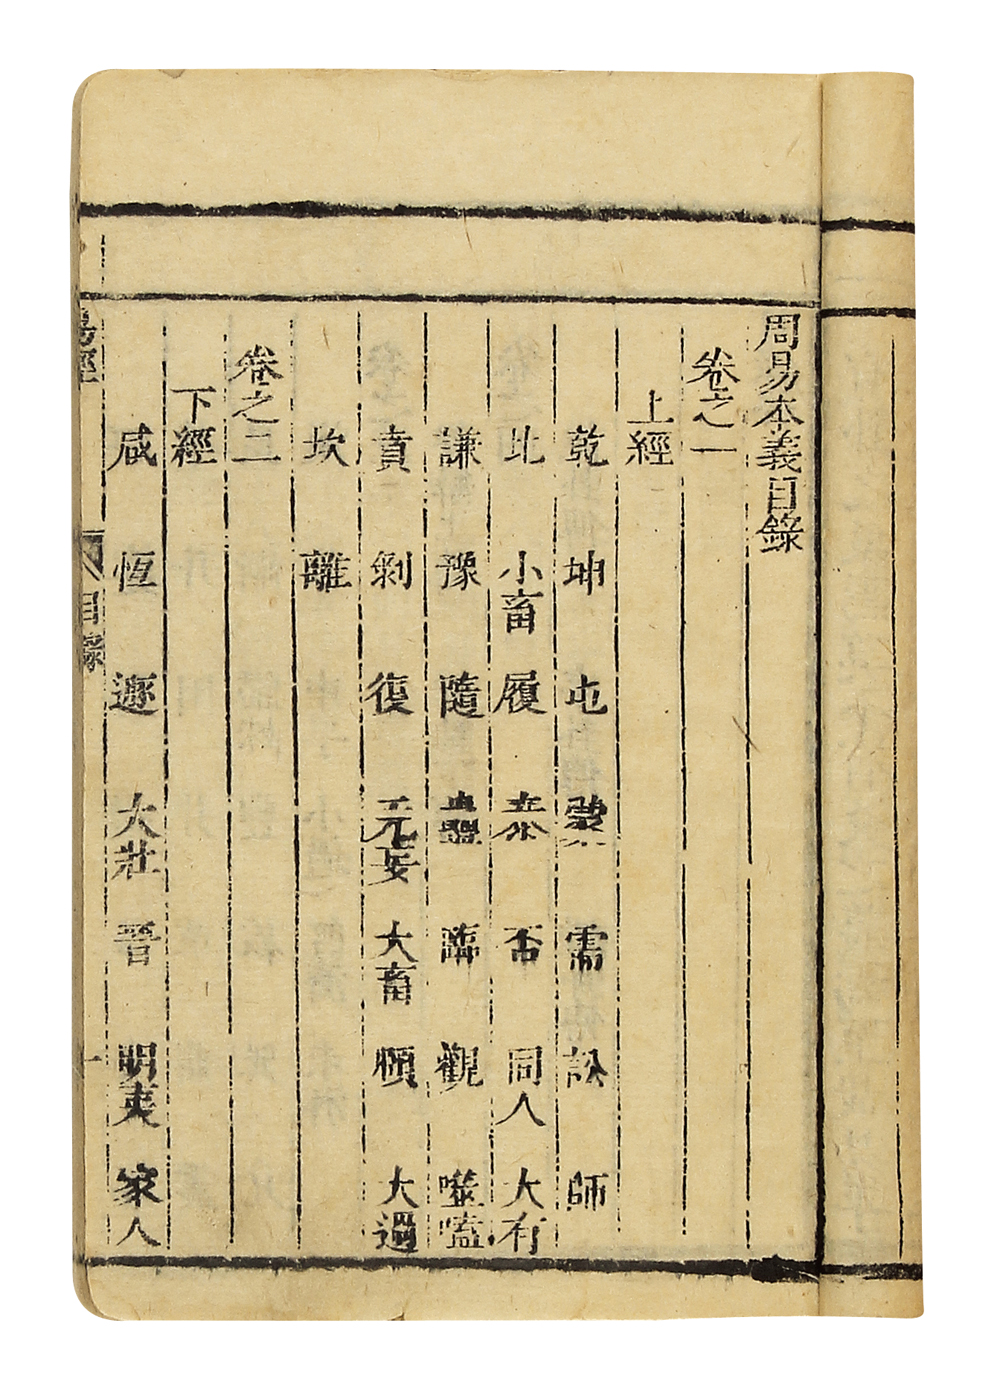 周易本義目錄
卷之一
上經
乾 坤 屯 蒙 需 訟 師
比 小畜 履 泰 否 同人 大有
謙 豫 隨 蠱 臨 觀 噬嗑
賁 剝 復 无妄 大畜 頤 大過
坎 離
卷之二
下經
咸 恆 遯 大壯 晉 明夷 家人
易經 目錄 一